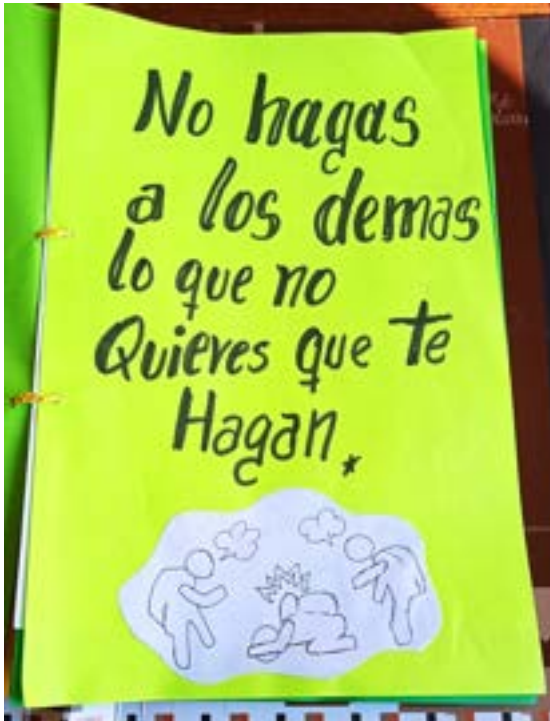 No hagas
a los demas
lo que no
Quieres que te
Hagan.